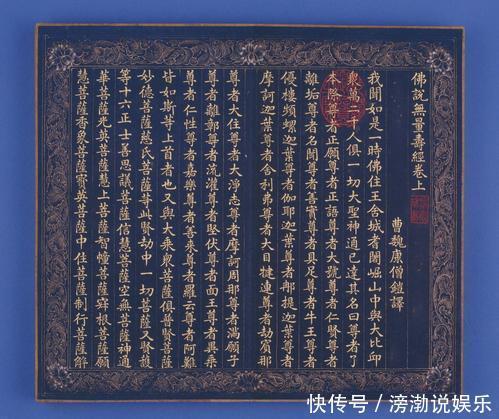 佛說無量壽經卷上
曹魏康僧鎧譯
我聞如是一時佛住王舍城耆闍崛山中與大比丘
眾萬二千人俱一切大聖神通已達其名曰尊者了
本際尊者正願尊者正語尊者大號尊者仁賢尊者
離垢尊者名聞尊者善實尊者具足尊者牛王尊者
優樓頻螺迦葉尊者伽耶迦葉尊者那提迦葉尊者
摩訶迦葉尊者舍利弗尊者大目犍連尊者劫賓那
尊者大住尊者大淨志尊者摩訶周那尊者滿願子
尊者離鄣尊者流灌尊者堅伏尊者面王尊者異乘
尊者仁性尊者嘉樂尊者善來尊者羅云尊者阿難
皆如斯等上首者也又與大乘眾菩薩俱普賢菩薩
妙德菩薩慈氏菩薩等此賢劫中一切菩薩又賢護
等十六正士善思議菩薩信慧菩薩空無菩薩神通
華菩薩光英菩薩慧上菩薩智幢菩薩寂根菩薩願
慧菩薩香象菩薩寶英菩薩中住菩薩制行菩薩解
快传号 / 滂渤说娱乐